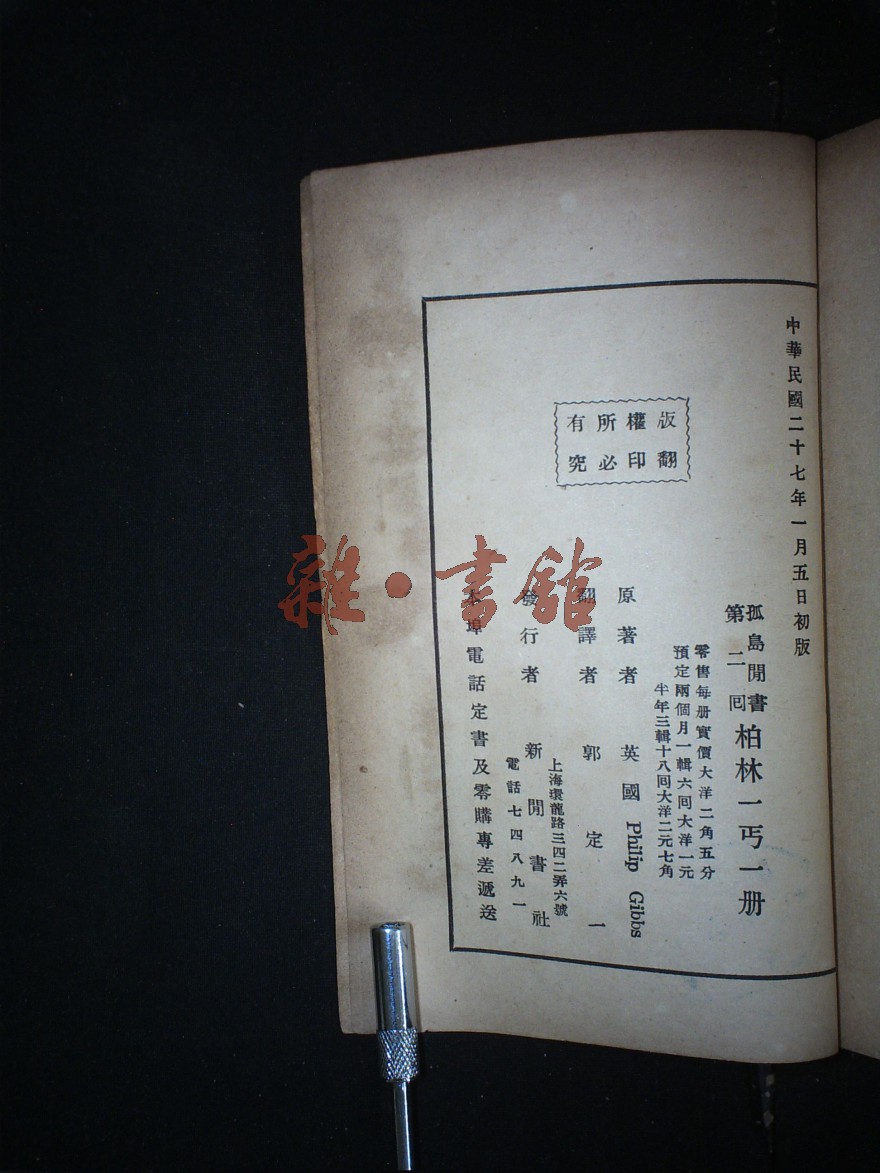 中華民國二十七年一月五日初版
孤島閒書
第二囘
柏林一丐一册
零售每册實價大洋二角五分
預定兩個月一輯六囘大洋一元
半年三輯十八囘大洋二元七角
版權所有
翻印必究
原著者 英國 Philip Gibbs
翻譯者 郭定一
發行者 新閒書社
上海環龍路三四二弄六號
電話七四八九一
本埠電話定書及零購專差遞送
雜·書館